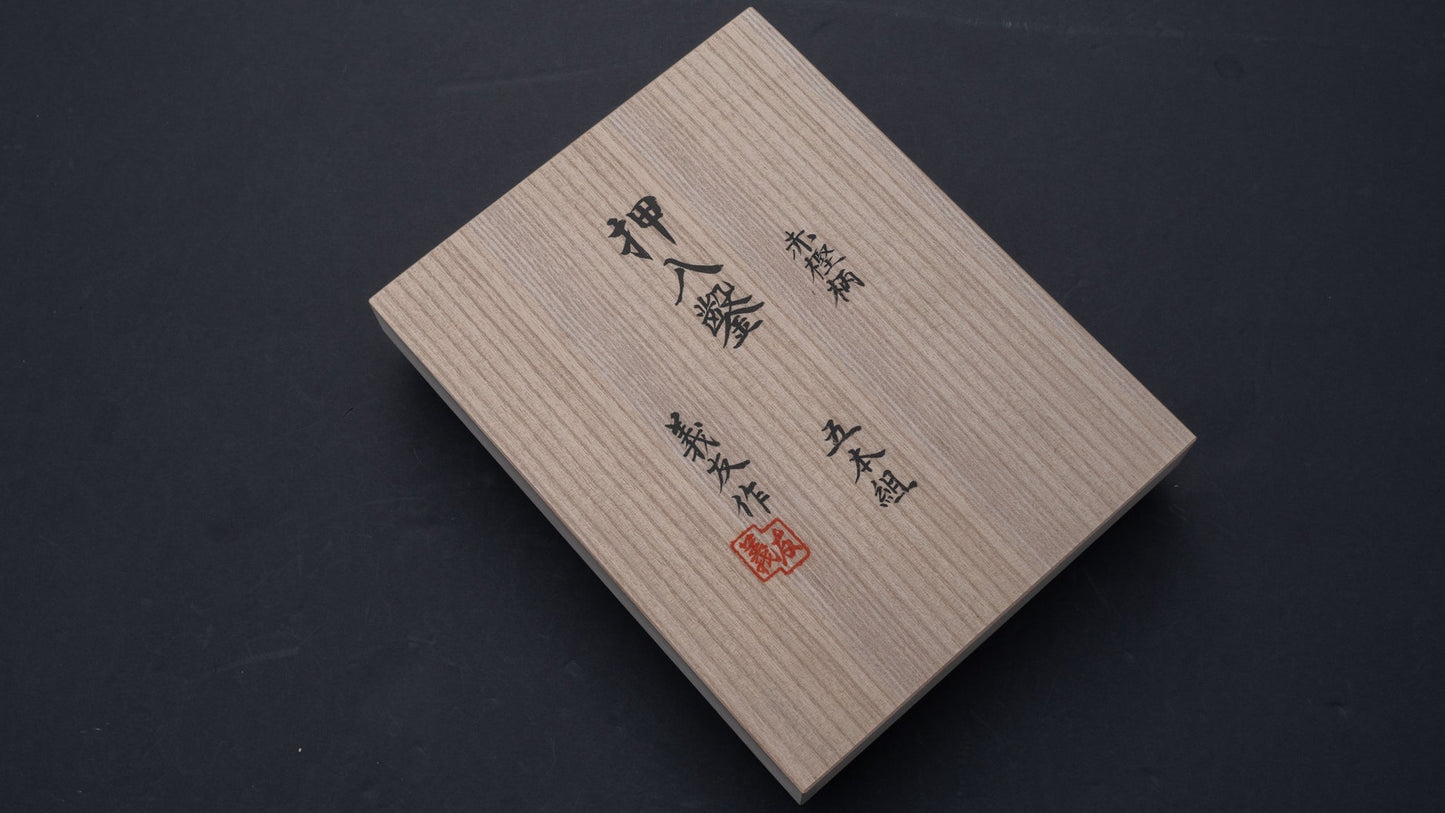 赤樫柄
五本組
押入鑿
義友作
義友